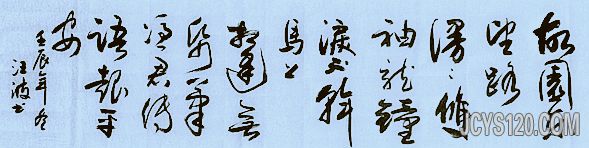 故園东
望路
漫々雙
袖龍鐘
淚不乾
馬上
相逢無
紙筆
憑君傳
語報平
安
壬辰年冬
汪波书
JCYS120.COM